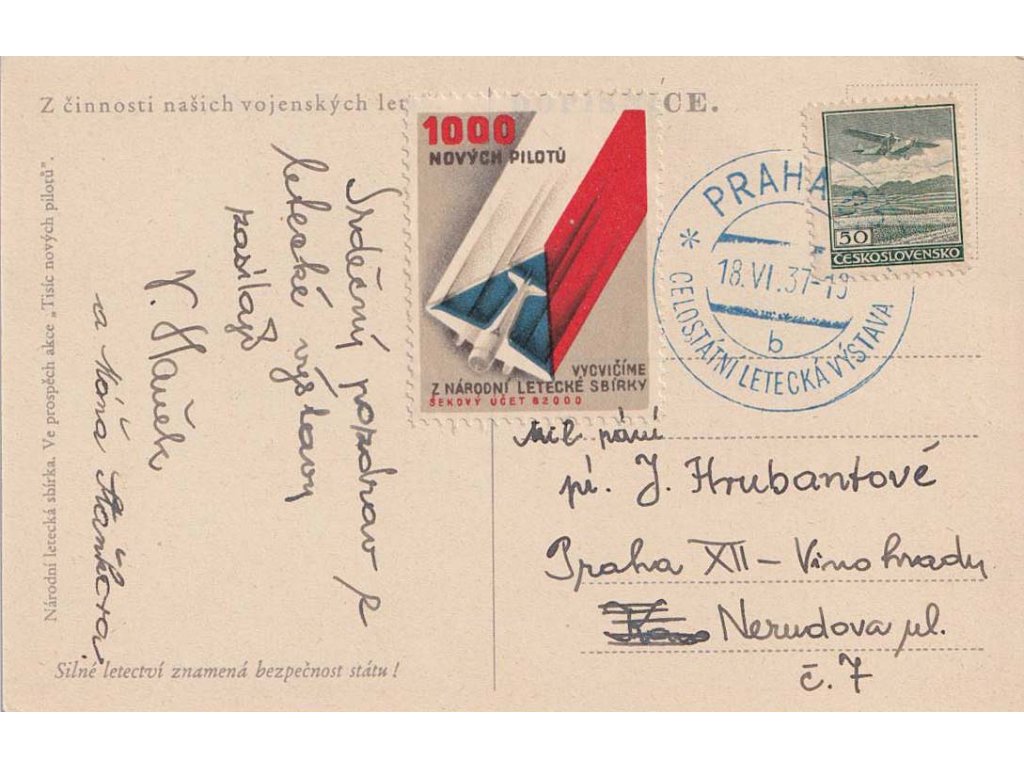 Z činnosti našich vojenských let
ICE.
Národní letecká sbírka. Ve prospěch akce „Tisíc nových pilotů".
1000
NOVÝCH PILOTŮ
VYCVIČÍME
Z NÁRODNÍ LETECKÉ SBÍRKY
ŠEKOVÝ ÚČET 82000
PRAHA
18.VI.37-19
b
* CELOSTÁTNÍ LETECKÁ VÝSTAVA
50
ČESKOSLOVENSKO
Srdečný pozdrav z
letecké výstavy
zasílají
V. Haněk
a Máňa
Mil. paní
pí. J. Hrubantové
Praha XII – Vinohrady
Nerudova ul.
č. 7
Silné letectví znamená bezpečnost státu!